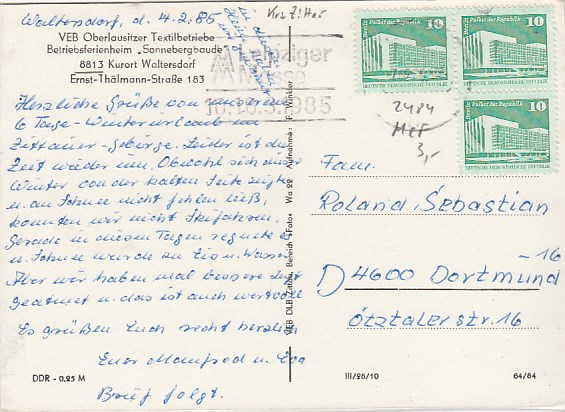 Waltersdorf, d. 4.2.85
VEB Oberlausitzer Textilbetriebe
Betriebsferienheim „Sonnebergbaude"
8813 Kurort Waltersdorf
Ernst-Thälmann-Straße 183
Herzliche Grüße von unserem
6 Tage-Winterurlaub im
Zittauer-Gebirge. Leider ist die
Zeit wieder um. Obwohl sich dieser
Winter von der kalten Seite zeigte
u. an Schnee nicht fehlen ließ,
konnten wir nicht Skifahren.
Gerade in diesen Tagen regnete es
u. Schnee wurde zu Eis u. Wasser
Aber wir haben mal bessere Luft
geatmet u. das ist auch wertvoll
Es grüßen Euch recht herzlich
Euer Manfred u. Eva
Brief folgt.
DDR - 0,25 M
VEB DLB Zittau, Bereich »Foto« Wa 22 Aufnahme: F. Winkler
Leipziger
Messe
10.-16.3.1985
10
Palast der Republik
DEUTSCHE DEMOKRATISCHE REPUBLIK
10
Berlin, Palast der Republik
DEUTSCHE DEMOKRATISCHE REPUBLIK
10
Berlin, Palast der Republik
DEUTSCHE DEMOKRATISCHE REPUBLIK
2484
MeF
3,-
Fam.
Roland Sebastian
D 4600 Dortmund -16
Ötztaler str. 16
III/26/10
64/84